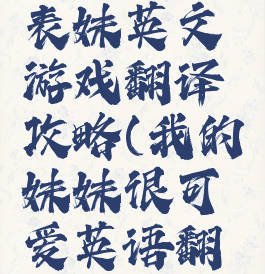 表妹英文
游戏翻译
攻略(我的
妹妹很可
爱英语翻